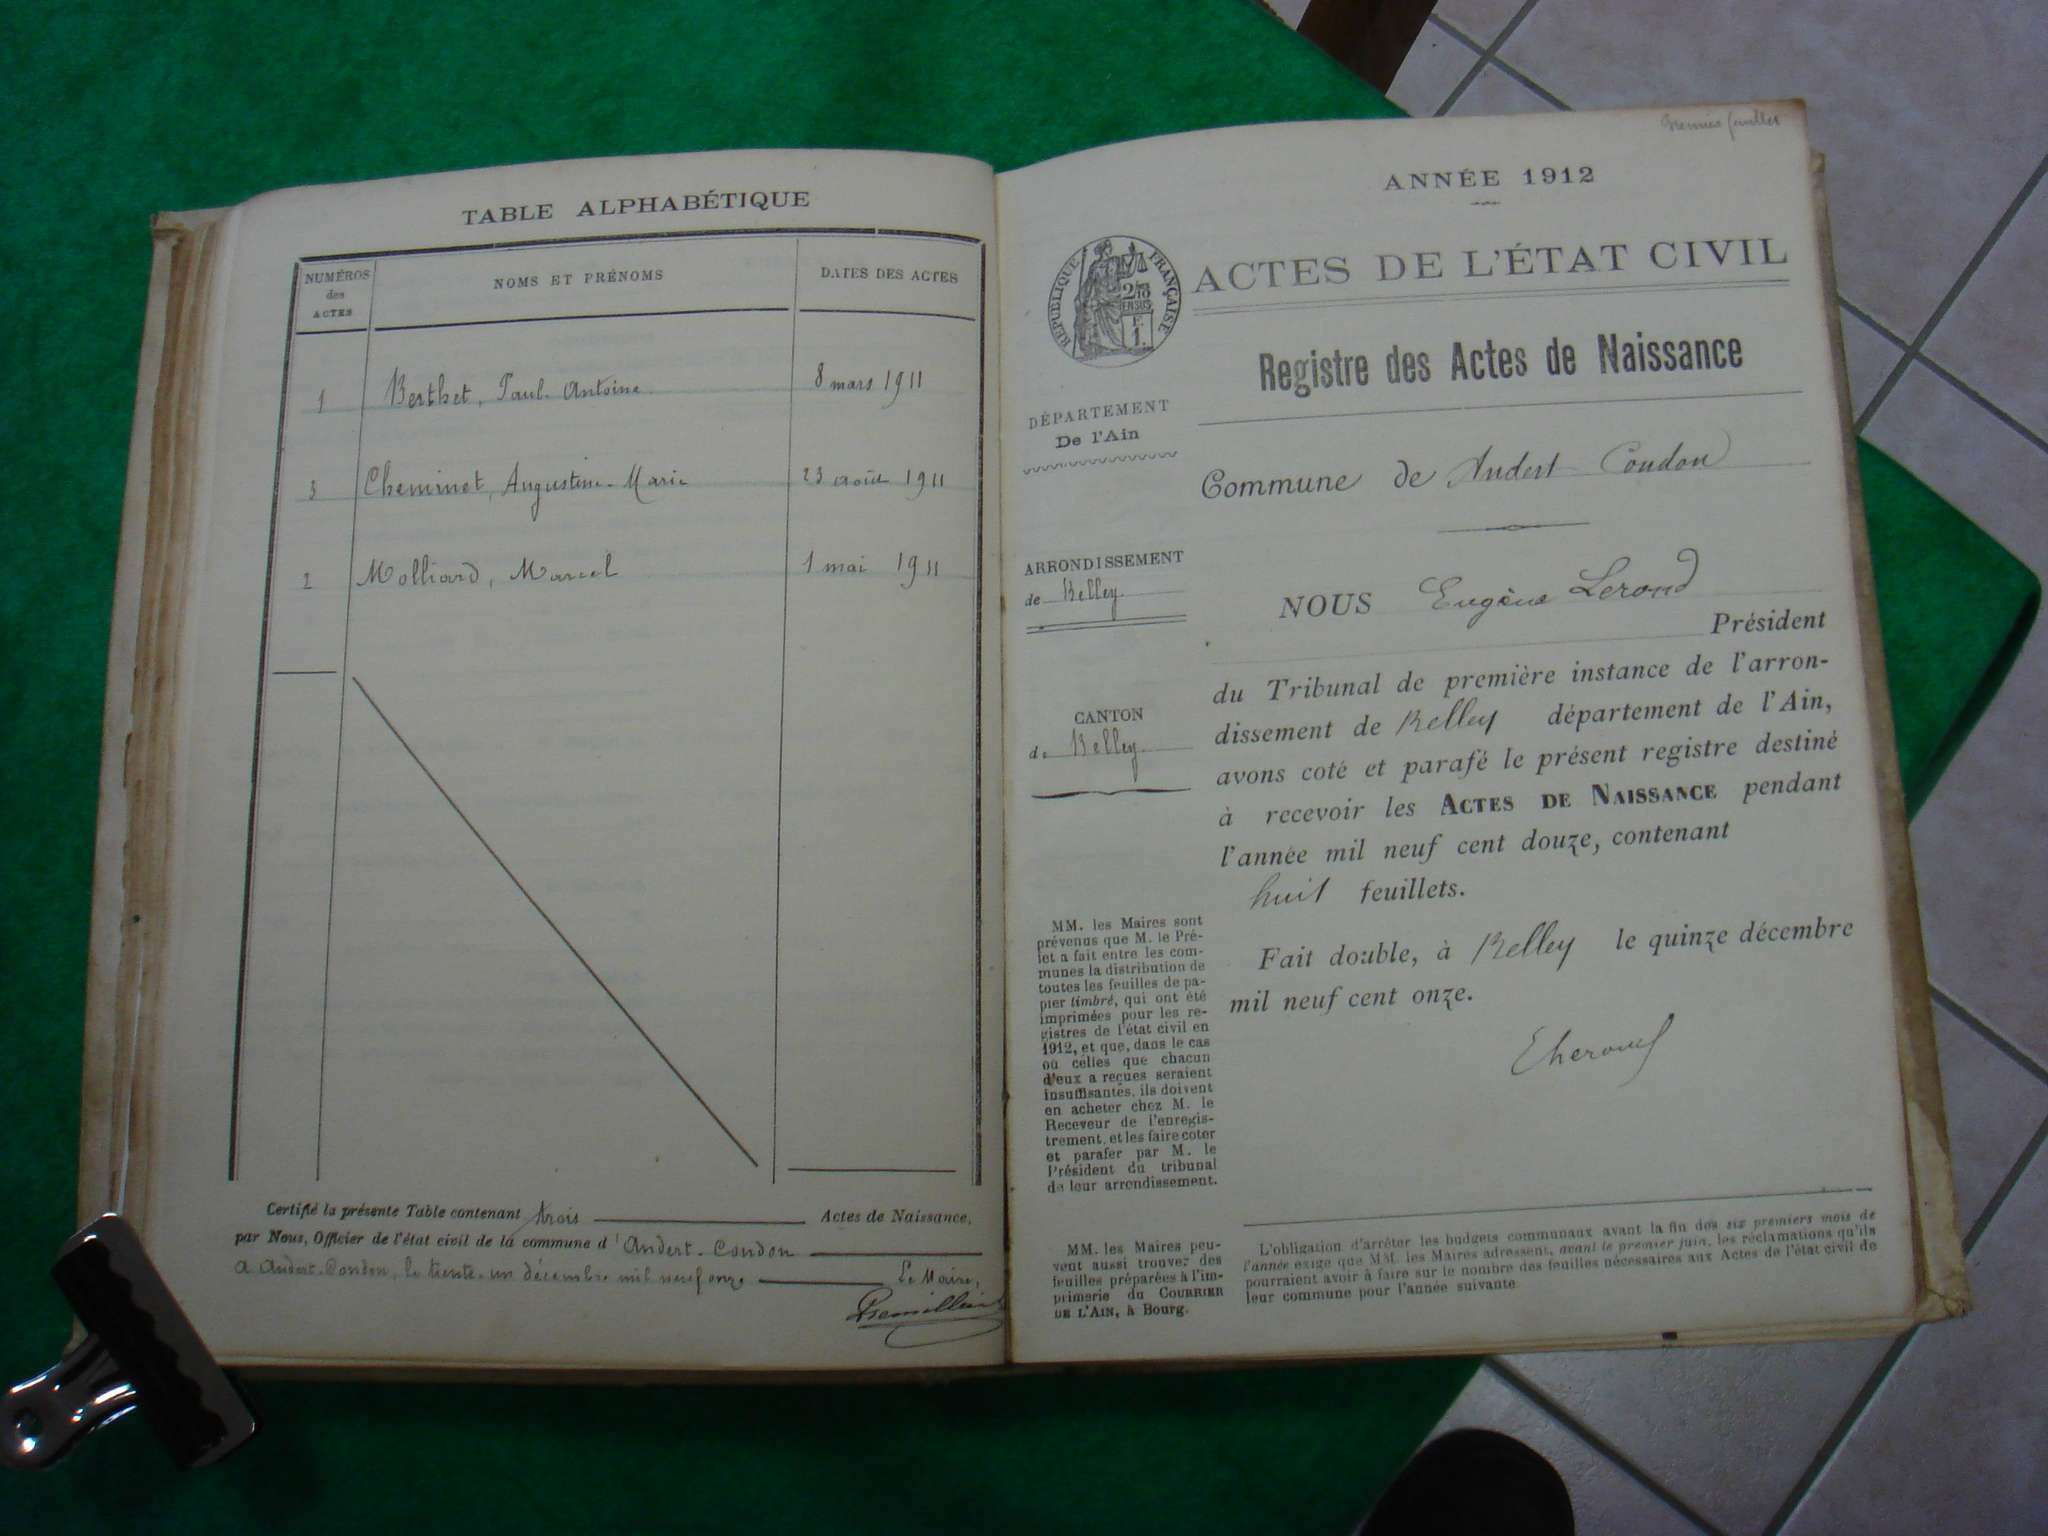 TABLE ALPHABÉTIQUE
NUMÉROS
des
ACTES
NOMS ET PRÉNOMS
DATES DES ACTES
1 Berthet, Paul Antoine 8 mars 1911
3 Cheminet, Augustine-Marie 23 août 1911
2 Molliard, Marcel 1 mai 1911
Certifié la présente Table contenant trois Actes de Naissance,
par Nous, Officier de l'état civil de la commune d'Andert-Condon
A Andert-Condon, le trente-un décembre mil neuf onze Le Maire,
Premier feuillet
ANNÉE 1912
RÉPUBLIQUE FRANÇAISE
ACTES DE L'ÉTAT CIVIL
Registre des Actes de Naissance
DÉPARTEMENT
De l'Ain
Commune de Andert Condon
ARRONDISSEMENT
de Belley
CANTON
de Belley
NOUS Eugène Lerond
Président
du Tribunal de première instance de l'arron-
dissement de Belley département de l'Ain,
avons coté et parafé le présent registre destiné
à recevoir les ACTES DE NAISSANCE pendant
l'année mil neuf cent douze, contenant
huit feuillets.
Fait double, à Belley le quinze décembre
mil neuf cent onze.
MM. les Maires sont
prévenus que M. le Pré-
fet a fait entre les com-
munes la distribution de
toutes les feuilles de pa-
pier timbré, qui ont été
imprimées pour les re-
gistres de l'état civil en
1912, et que, dans le cas
où celles que chacun
d'eux a reçues seraient
insuffisantes, ils doivent
en acheter chez M. le
Receveur de l'enregis-
trement, et les faire coter
et parafer par M. le
Président du tribunal
de leur arrondissement.
MM. les Maires peu-
vent aussi trouver des
feuilles préparées à l'im-
primerie du COURRIER
DE L'AIN, à Bourg.
L'obligation d'arrêter les budgets communaux avant la fin des six premiers mois de
l'année exige que MM. les Maires adressent, avant le premier juin, les réclamations qu'ils
pourraient avoir à faire sur le nombre des feuilles nécessaires aux Actes de l'état civil de
leur commune pour l'année suivante